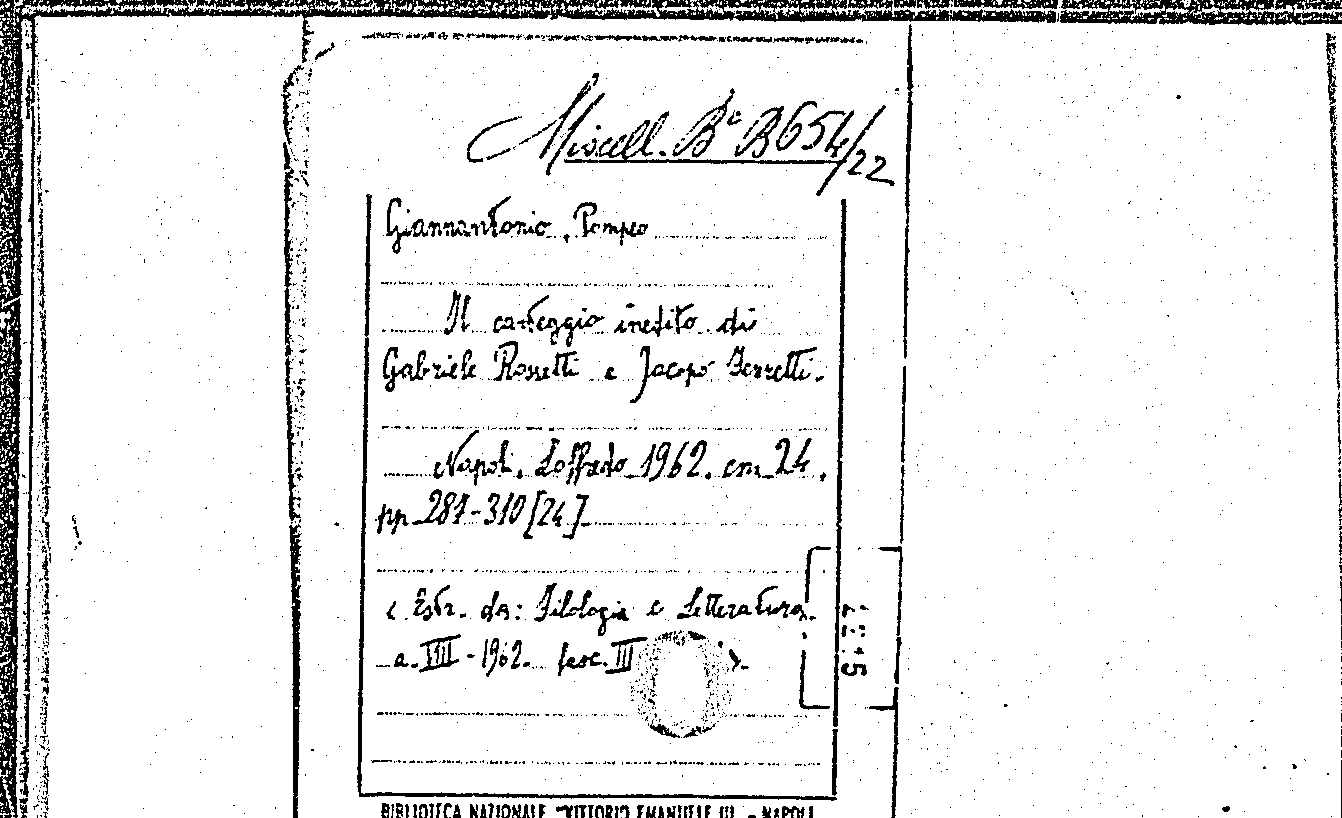 Miscell. Bª B654/22
Giannantonio, Pompeo
Il carteggio inedito di
Gabriele Rossetti e Jacopo Ferretti.
Napoli. Loffredo 1962. cm 24.
pp 287-310 [24]
< Estr. da: Filologia e Letteratura.
a. VIII - 1962. fasc. III >.
BIBLIOTECA NAZIONALE "VITTORIO EMANUELE III" - NAPOLI